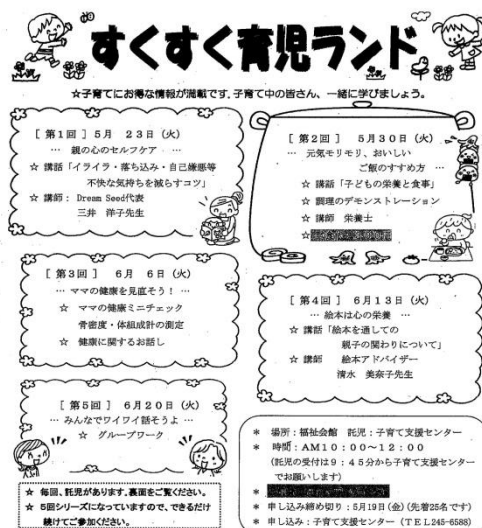 すくすく育児ランド
☆子育てにお得な情報が満載です。子育て中の皆さん、一緒に学びましょう。
[ 第1回 ] 5月 23日 (火)
… 親の心のセルフケア …
☆ 講話「イライラ・落ち込み・自己嫌悪等
不快な気持ちを減らすコツ」
☆ 講師: Dream Seed代表
三井 洋子先生
[ 第2回 ] 5月30日 (火)
… 元気モリモリ、おいしい
ご飯のすすめ方 …
☆ 講話「子どもの栄養と食事」
☆ 調理のデモンストレーション
☆ 講師 栄養士
☆
[ 第3回 ] 6月 6日 (火)
… ママの健康を見直そう! …
☆ ママの健康ミニチェック
骨密度・体組成計の測定
☆ 健康に関するお話し
[ 第4回 ] 6月13日 (火)
… 絵本は心の栄養 …
☆ 講話「絵本を通しての
親子の関わりについて」
☆ 講師 絵本アドバイザー
清水 美奈子先生
[ 第5回 ] 6月20日 (火)
… みんなでワイワイ話そうよ …
☆ グループワーク
☆ 毎回、託児があります。裏面をご覧ください。
☆ 5回シリーズになっていますので、できるだけ
続けてご参加ください。
* 場所:福祉会館 託児:子育て支援センター
* 時間:AM10:00~12:00
(託児の受付は9:45分から子育て支援センター
でお願いします)
*
* 申し込み締め切り:5月19日(金)(先着25名です)
* 申し込み:子育て支援センター (TEL245-6588)